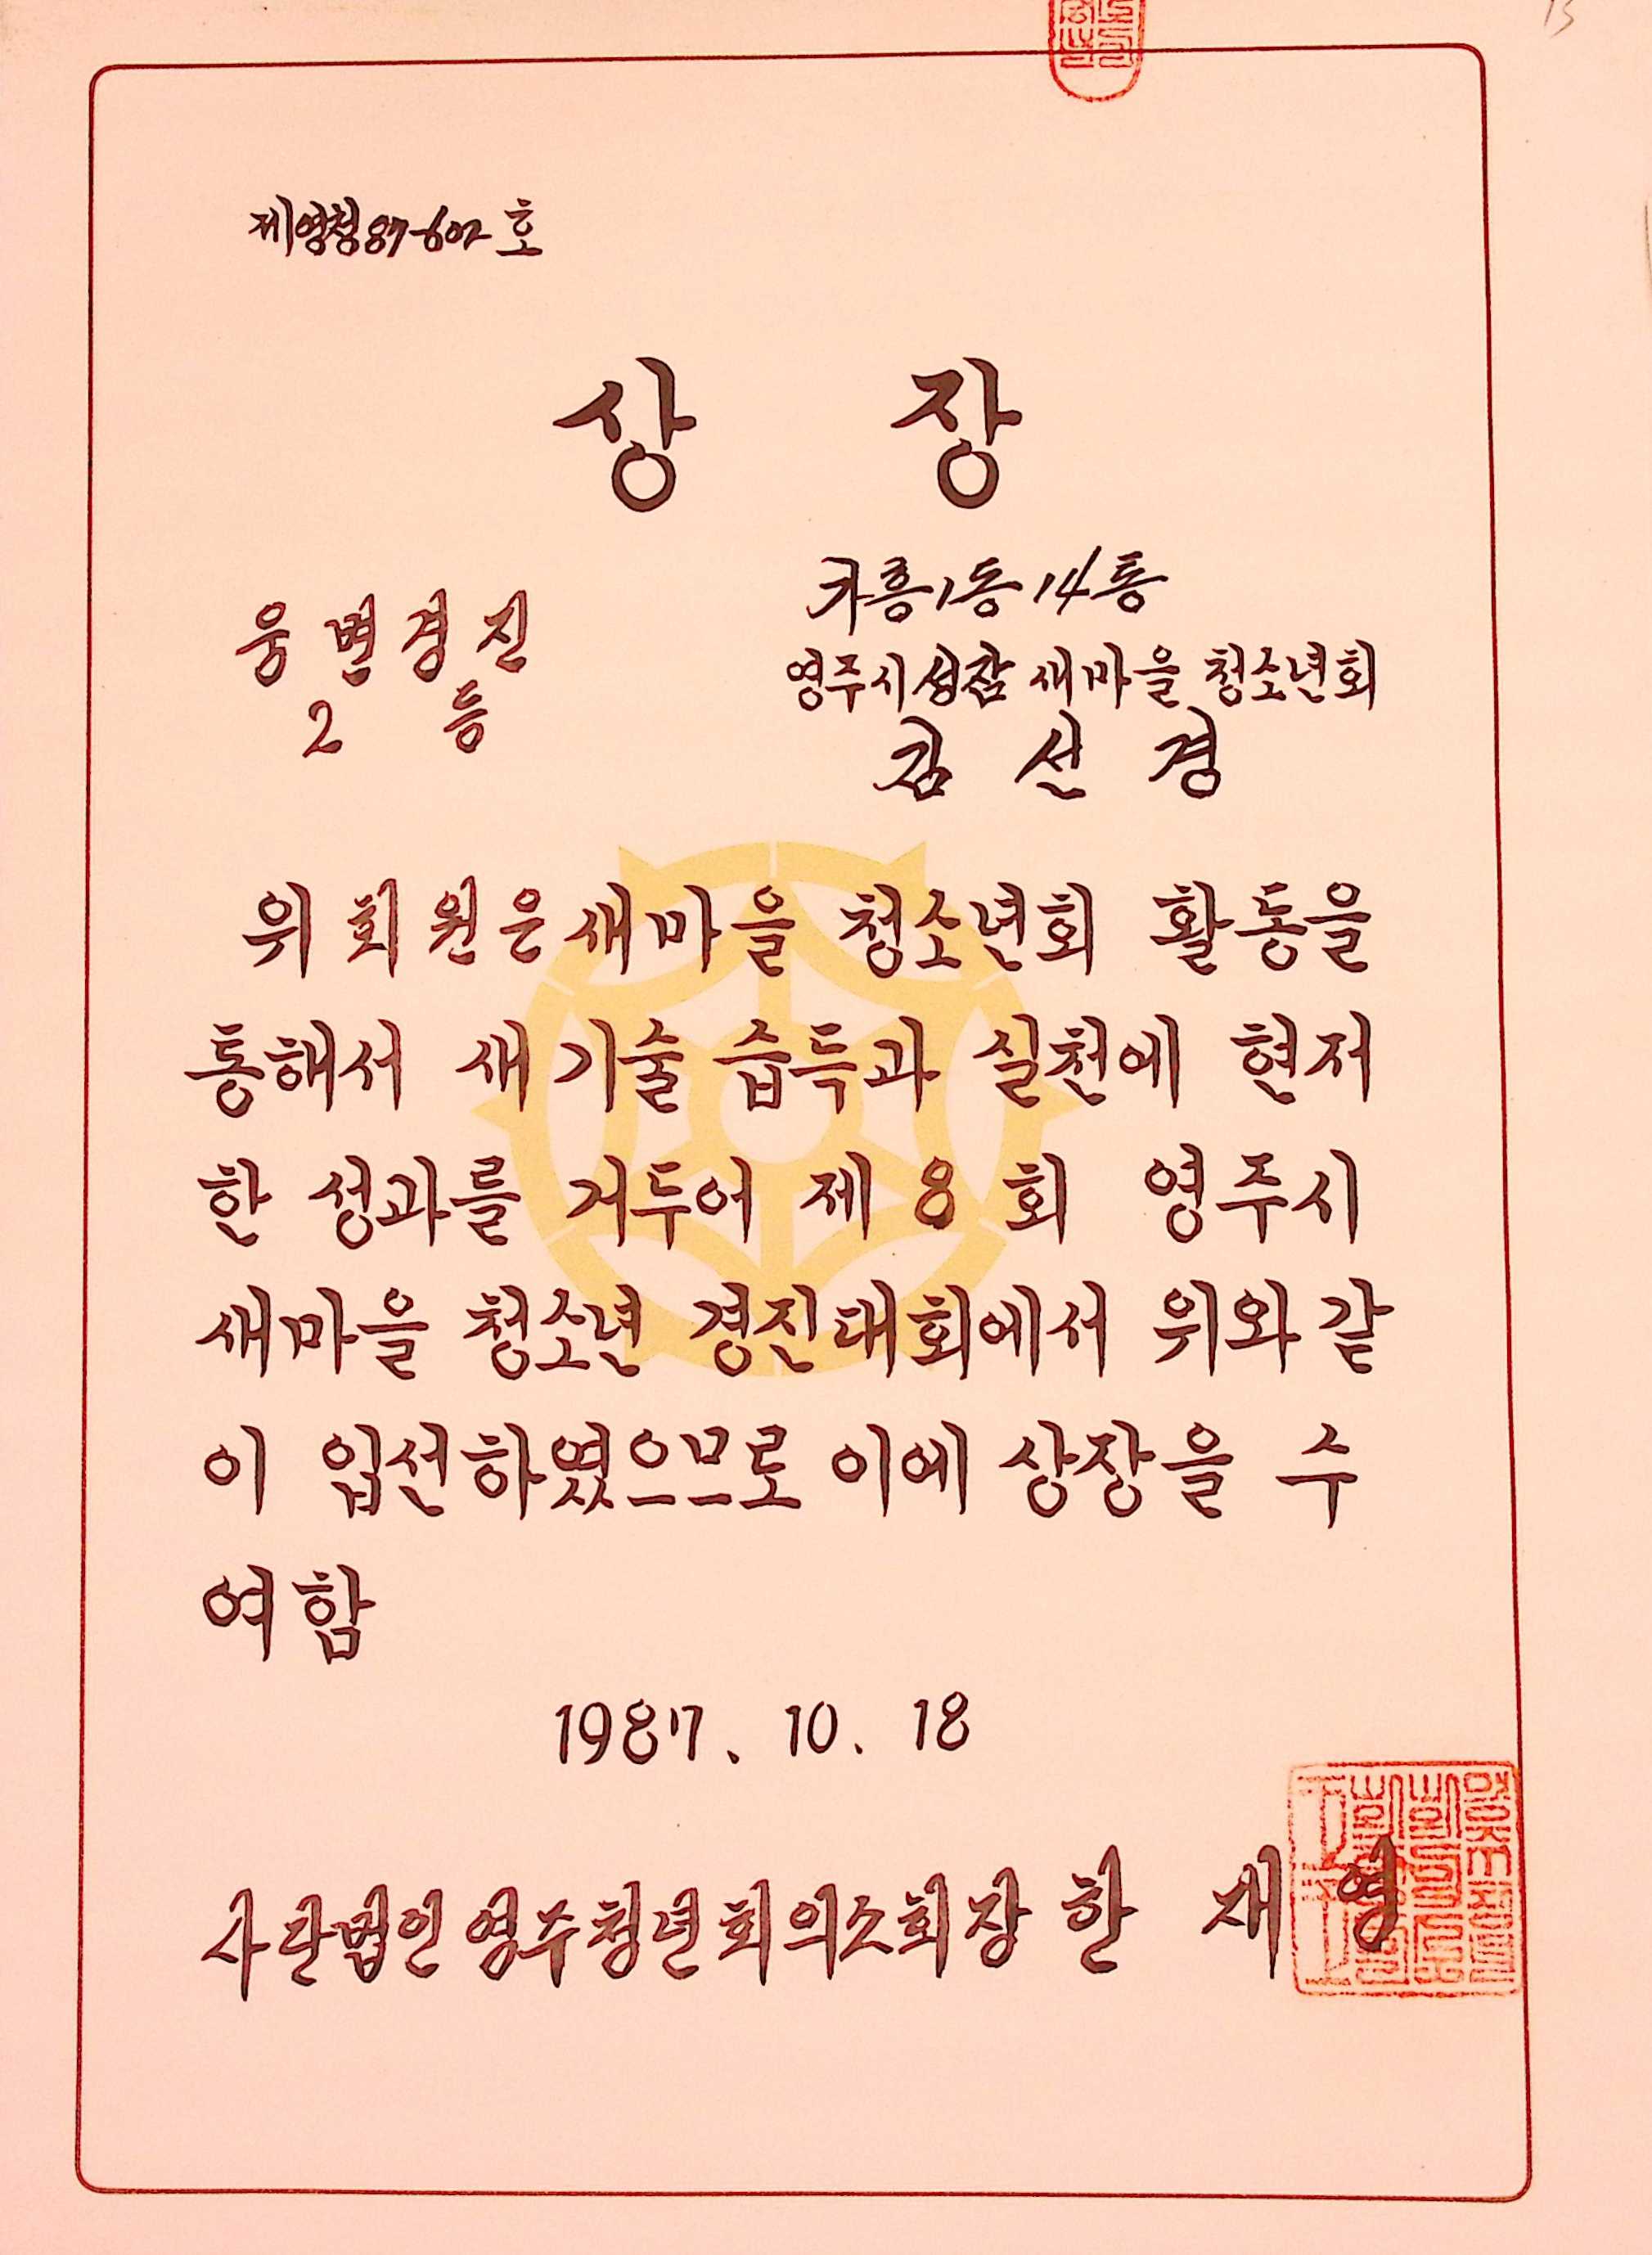 13
제영청87-602호
상 장
웅변경진
2 등
가흥1동 14통
영주시 성참 새마을 청소년회
김 선 경
위 회원은 새마을 청소년회 활동을
통해서 새기술 습득과 실천에 현저
한 성과를 거두어 제 8 회 영주시
새마을 청소년 경진대회에서 위와 같
이 입선하였으므로 이에 상장을 수
여함
1987. 10. 18
사단법인영주청년회의소회장 한 재영